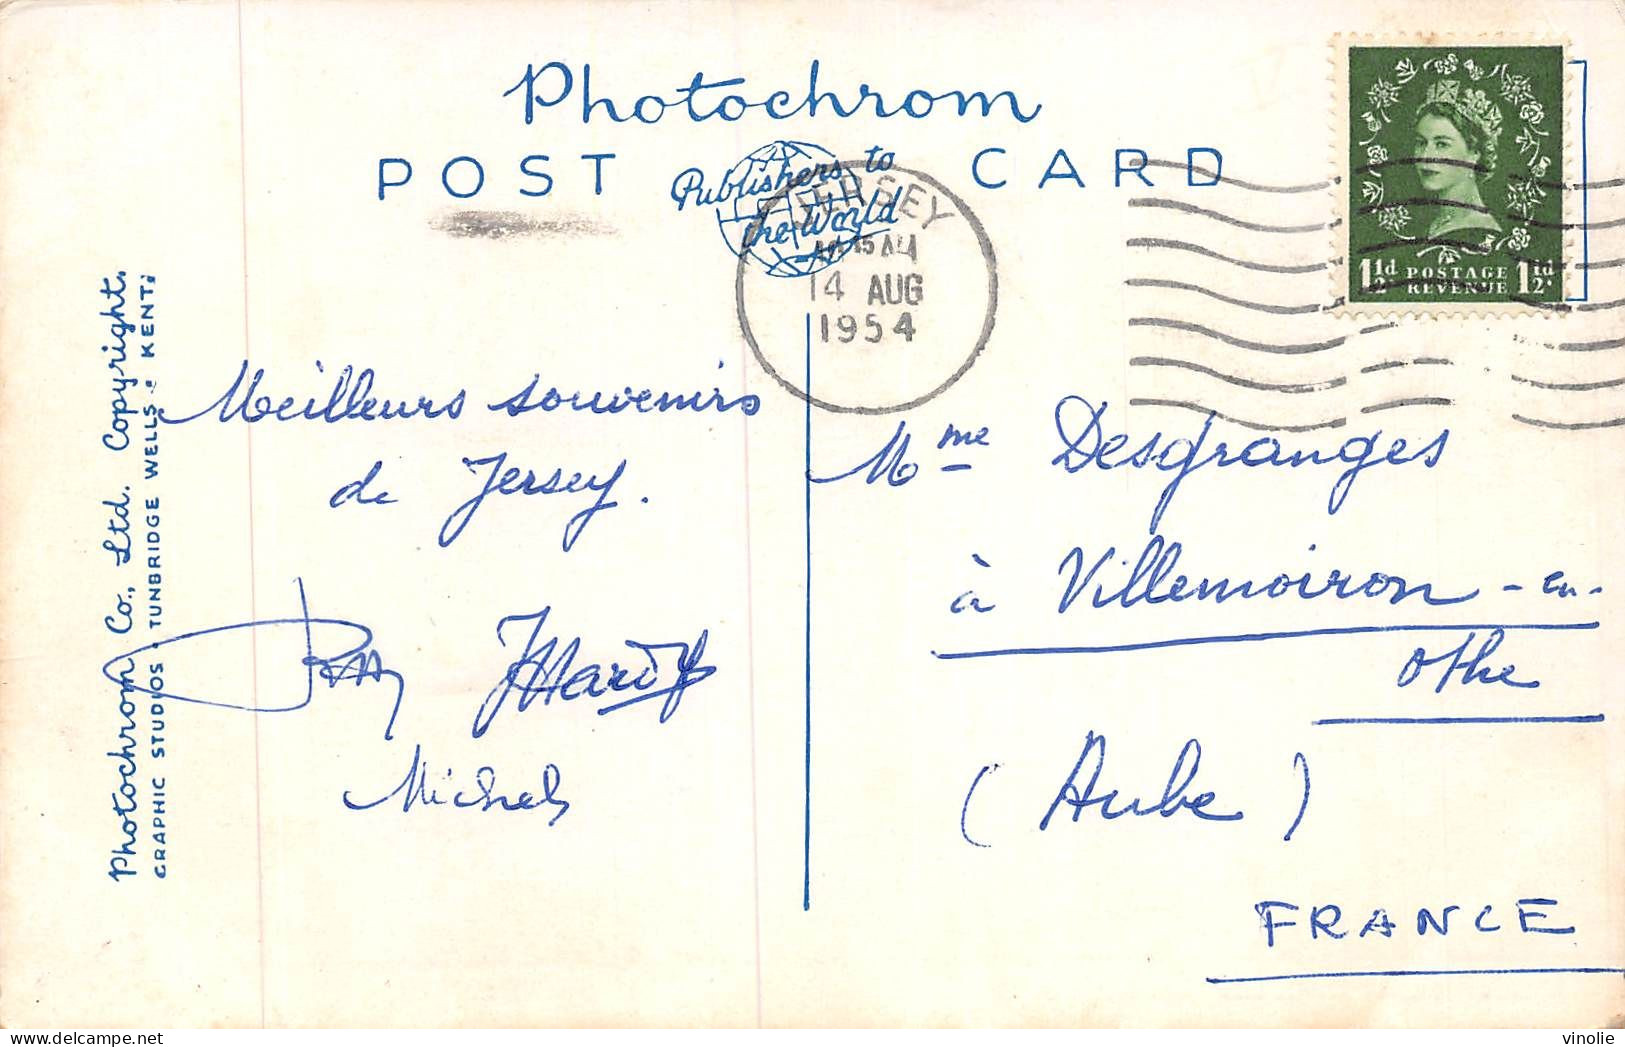 Photochrom
POST CARD
Publishers to
the World
JERSEY
14 AUG
1954
1½d POSTAGE 1½d
REVENUE
Photochrom Co., Ltd. Copyright.
GRAPHIC STUDIOS • TUNBRIDGE WELLS • KENT
Meilleurs souvenirs
de Jersey.
Michel
Mme Desgranges
à Villemoiron-en-
Othe
(Aube)
FRANCE
vinolie